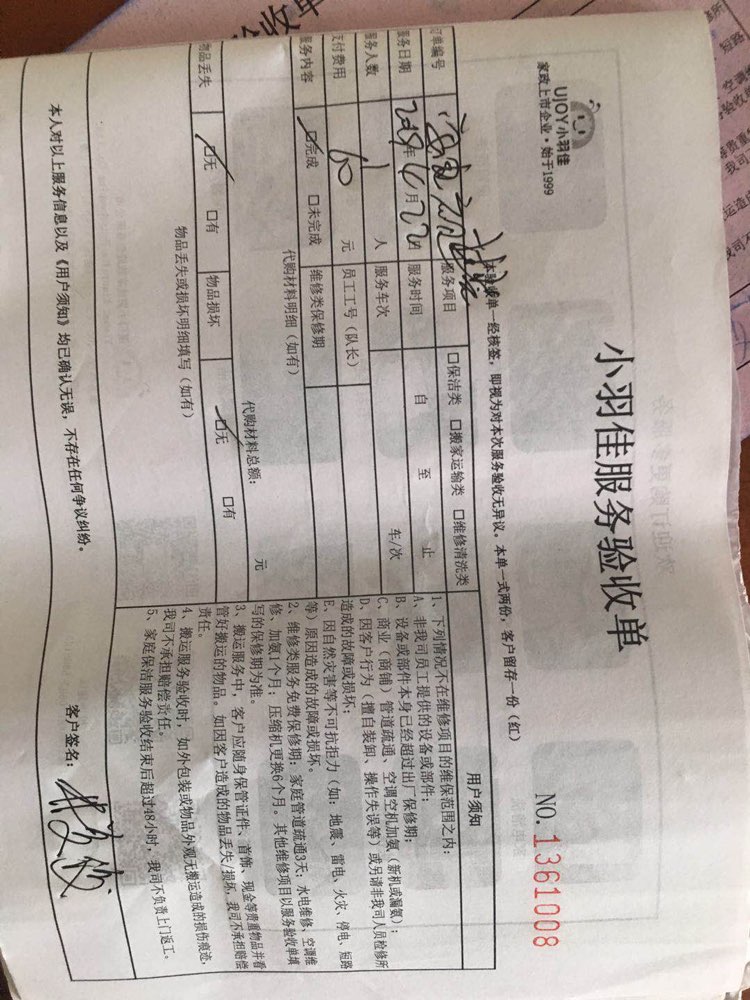 UJOY小羽佳
家政上市企业·始于1999
小羽佳服务验收单
NO. 1361008
本验收单一经核签，即视为对本次服务验收无异议。本单一式两份，客户留存一份（红）
订单编号
服务项目 □保洁类 □搬家运输类 □维修清洗类
服务日期 年 月 22日 服务时间 自 至 止
服务人数 1 人 服务车次 车/次
支付费用 60 元 员工工号（队长）
服务内容 ☑完成 □未完成 维修类保修期
代购材料明细（如有）
代购材料总额： 元
物品丢失 ☑无 □有 物品损坏 ☑无 □有
物品丢失或损坏明细填写（如有）
用户须知
1、下列情况不在维修项目的维保范围之内：
A、非我司员工提供的设备或部件；
B、设备或部件本身已经超过出厂保修期；
C、商业（商铺）管道疏通、空调空机加氨（新机或漏氨）；
D、因客户行为（擅自装卸、操作失误等）或另请非我司人员检修所
造成的故障或损坏；
E、因自然灾害等不可抗拒力（如：地震、雷电、火灾、停电、短路
等）原因造成的故障或损坏。
2、维修类服务免费保修期：家庭管道疏通3天；水电维修、空调维
修、加氨1个月；压缩机更换6个月。其他维修项目以服务验收单填
写的保修期为准。
3、搬运服务中，客户应随身保管证件、首饰、现金等贵重物品并看
管好搬运的物品。如因客户造成的物品丢失/损坏，我司不承担赔偿
责任。
4、搬运服务验收时，如外包装或物品外观无搬运造成的损伤痕迹，
我司不承担赔偿责任。
5、家庭保洁服务验收结束后超过48小时，我司不负责上门返工。
本人对以上服务信息以及《用户须知》均已确认无误，不存在任何争议纠纷。
客户签名：